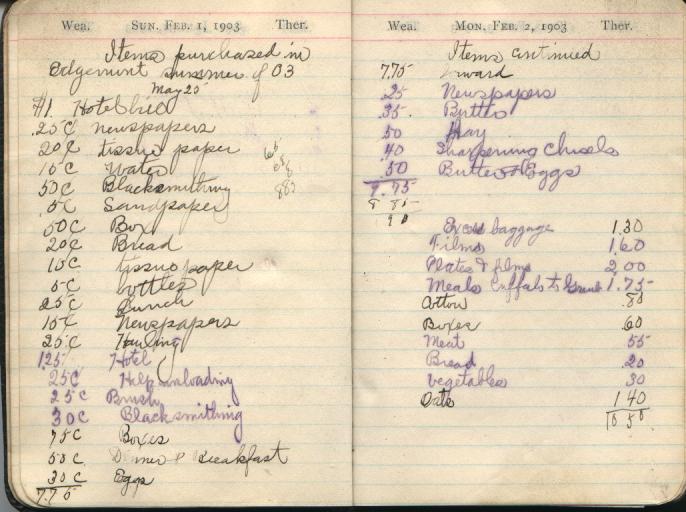 Wea. Sun. Feb. 1, 1903 Ther.
Items purchased in
Edgemont summer of 03
May 25
$1. Hotel bill
25¢ newspapers
20¢ tissue paper
10¢ Water
50¢ Blacksmithing
5¢ Sandpaper
50¢ Box
20¢ Bread
10¢ tissue paper
5¢ bottles
25¢ Lunch
10¢ Newspapers
25¢ Hauling
1.25 Hotel
25¢ Help unloading
25¢ Brush
30¢ Blacksmithing
75¢ Boxes
50¢ Dinner & Breakfast
30¢ Eggs
7.75
Wea. Mon. Feb. 2, 1903 Ther.
Items continued
7.75 forward
.25 Newspapers
.35 Butter
.50 Hay
.40 Sharpening chisels
.50 Butter & Eggs
9.75
8 85
90
Excess baggage 1.30
Films 1.60
Plates & films 2.00
Meals Buffalo to 1.75
Cotton 80
Boxes 60
Meat 55
Bread 20
Vegetables 30
Oats 1 40
10 50